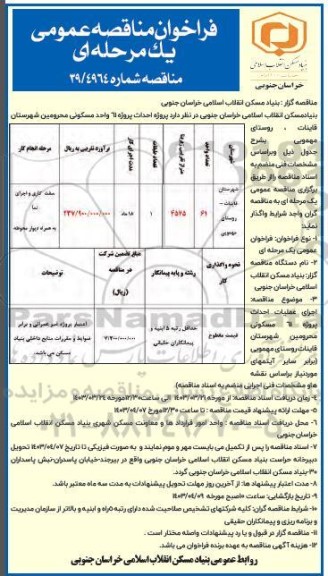 فراخوان مناقصه عمومی
یک مرحله ای
مناقصه شماره ۳۹/۴۹۶۴
بنیاد مسکن انقلاب اسلامی
خراسان جنوبی
مناقصه گزار : بنیاد مسکن انقلاب اسلامی خراسان جنوبی
بنیادمسکن انقلاب اسلامی خراسان جنوبی در نظر دارد پروژه احداث پروژه ۶۱ واحد مسکونی محرومین شهرستان
قاینات ، روستای
مهمویی بشرح
جدول ذیل وبراساس
مشخصات فنی منضم به
اسناد مناقصه را از طریق
برگزاری مناقصه عمومی
یک مرحله ای به مناقصه
گران واجد شرایط واگذار
نماید:
۱- نوع فراخوان: فراخوان
عمومی یک مرحله ای
۲- نام دستگاه مناقصه
گزار: بنیاد مسکن انقلاب
اسلامی خراسان جنوبی
۳- موضوع مناقصه:
اجرای عملیات احداث
پروژه ۶۱ مسکونی
محرومین شهرستان
قاینات روستای مهمویی
(برابر سایر آیتمهای
موردنیاز براساس نقشه
ها و مشخصات فنی اجرایی منضم به اسناد مناقصه)
مدت اجرای کار
برآورد تقریبی به ریال
مرحله انجام کار
شهرستان
قاینات -
روستای
مهمویی
۶۱
۴۵۷۵
۱
۱۸ ماه
۲۳۷/۹۰۰/۰۰۰/۰۰۰
سفت کاری و اجرای
نما
به همراه دیوار محوطه
نحوه واگذاری
کار
رشته و پایه پیمانکار
مبلغ تضمین شرکت
در مناقصه
(ریال)
توضیحات
قیمت مقطوع
حداقل رتبه ۵ ابنیه و
پیمانکاران حقیقی
اعتبار پروژه غیر عمرانی و برابر
ضوابط و مقررات منابع داخلی بنیاد
مسکن می باشد.
۴- زمان دریافت اسناد مناقصه: از مورخه ۱۴۰۳/۰۳/۲۱ الی ساعت ۱۴:۳۰مورخ ۱۴۰۳/۰۳/۲۴
۵- مهلت ارائه پیشنهاد قیمت مناقصه : تا ساعت ۱۴:۳۰مورخ ۱۴۰۳/۰۴/۰۷
۶- محل دریافت اسناد مناقصه : واحد امور قرارداد ها و معاونت مسکن شهری بنیاد مسکن انقلاب اسلامی
خراسان جنوبی
۷- اسناد مناقصه را پس از تکمیل می بایست مهر و موم نمایند و به صورت فیزیکی تا تاریخ ۱۴۰۳/۰۴/۰۷ تحویل
دبیرخانه حراست بنیاد مسکن انقلاب اسلامی خراسان جنوبی واقع در بیرجند-خیابان پاسداران-نبش پاسداران
۳۰-بنیاد مسکن انقلاب اسلامی خراسان جنوبی گردد.
۸- مدت اعتبار پیشنهاد ها: از آخرین روز مهلت تحویل پیشنهادات به مدت سه ماه معتبر باشد.
۹- تاریخ بازگشایی: ساعت ۱۰صبح مورخه ۱۴۰۳/۰۴/۰۹
۱۰- شرایط مناقصه گران: کلیه شرکتهای تشخیص صلاحیت شده دارای رتبه ۵راه و ابنیه و بالاتر از سازمان مدیریت
و برنامه ریزی و پیمانکاران حقیقی
۱۱- مناقصه گزار در قبول و یا رد پیشنهادات واصله مختار است .
۱۲- هزینه آگهی مناقصه به عهده برنده فراخوان می باشد.
روابط عمومی بنیاد مسکن انقلاب اسلامی خراسان جنوبی